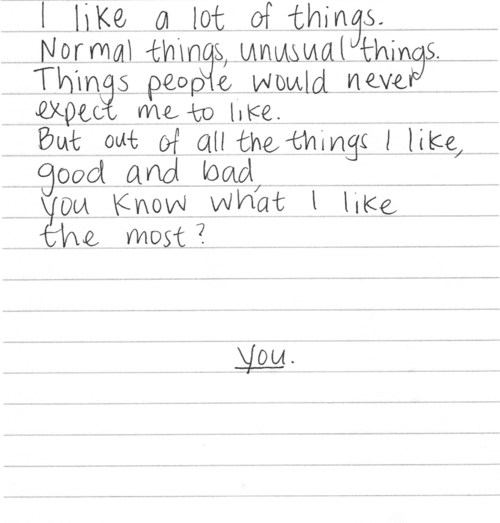 I like a lot of things.
Normal things, unusual things.
Things people would never
expect me to like.
But out of all the things I like,
good and bad,
you know what I like
the most?
you.